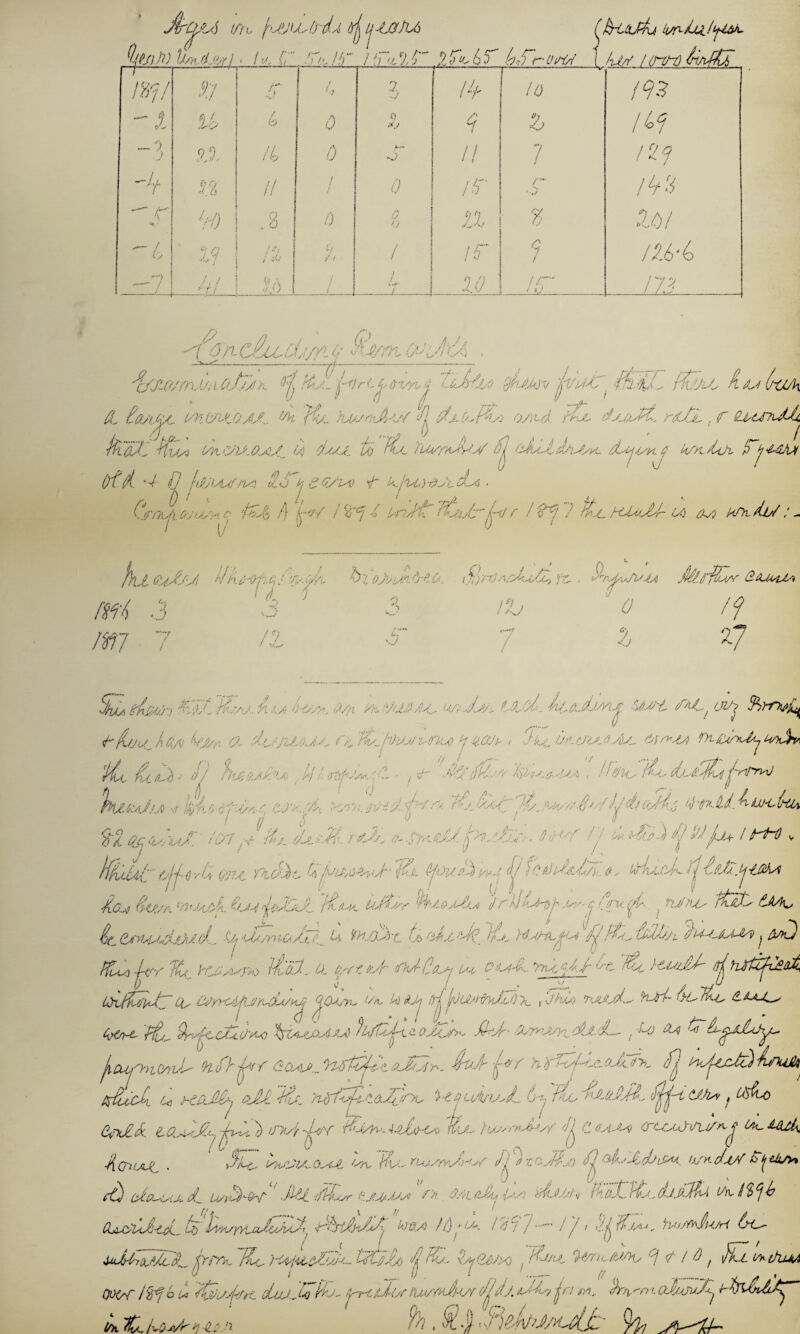 Ages in periods of years (Deaths under 1 year
Years Under 1. 1 to 5 5 to 15 15 to 25 25 to 65 65 & over per 1000 births
1891 27 5 6 3 14 10 193
-2 26 6 0 2 9 2 169
-3 22 16 0 5 11 7 129
-4 28 11 1 0 15 5 143
-5 40 8 0 2 22 8 201
-6 29 12 2 1 15 9 126.6
-7 41 20 1 4 20 15 173
Concluding Remarks.
Examination of the foregoing tables shews first, that there has been
a large increase in the number of deaths and the death rate, & secondly
that this increase is due to the number of children dying under 5 years
old & of persons 25 years & upwards.
Comparing the for 1896 with that for 1897 the result is as under:-
Measles Whooping Cough Diarrhoea Bronchitis &c. Injuries All other causes
1896 3 3 3 12 0 19
1897 7 12 5 7 2 27
This shews that there has been an increase under each heading save one, viz Bronchitis
& there has been a decrease in the previous year. The increase comes mainly under
the head of Measles, Whooping C., & "All other Diseases". Were the deaths from
Measles & Whooping cough removed from the list the number of deaths would have been
82 against 107 & the death rate a small fraction over 17 instead of 22 per 1000.
What efforts were made to prevent the spread of Scarlatina, which of late years
has been much less fatal than either Measles or Whooping Cough, now that can
be considered legitimate is made to check the ravages of the latter Diseases, and
this for the reason that a great outcry in each might be the result of notification
without a corresponding gain in way of prevention. This need not be the case
were the Infectious Diseases Notification Act amended, so as to legalise
payment not for case notification but for notification of infected houses
which is really all the notification required by the health officers, who
could easily find out for themselves the number of cases occurring in each
house. The increase in the number of deaths of children under 5 years
old classed under "All other causes" on analysis shews that the deaths in 1896
ascribed to Immaturity & Debility was 10; in 1897 - 17. If these numbers be
subtracted from the respective totals of the 2 years, there remain 9 & 10, the increase
over 1896 is therefore due to the greater number of deaths from "Immaturity & Debility"
in the past year